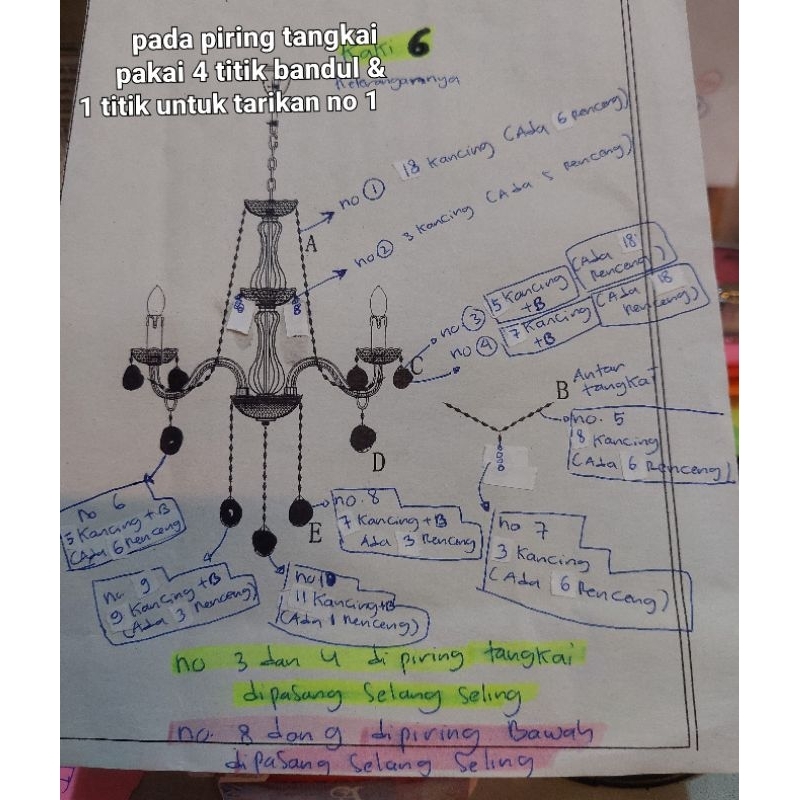 pada piring tangkai
pakai 4 titik bandul &
1 titik untuk tarikan no 1
Kaki 6
Keterangannya
no 1 18 Kancing (Ada 6 Renceng)
no 2 3 Kancing (Ada 5 Renceng)
A
no 3 5 Kancing +B (Ada 18 Renceng)
no 4 7 Kancing +B (Ada 18 Renceng)
C
Antar tangkai
B
no. 5
8 Kancing
(Ada 6 Renceng)
D
no 6
3 Kancing + B
(Ada 6 Renceng)
E
no. 8
7 Kancing + B
Ada 3 Renceng
no 7
3 Kancing
(Ada 6 Renceng)
no. 9
9 Kancing + B
(Ada 3 Renceng)
no 10
11 Kancing + B
(Ada 1 Renceng)
no 3 dan 4 di piring tangkai
dipasang Selang Seling
no. 8 dan 9 dipiring Bawah
dipasang Selang Seling